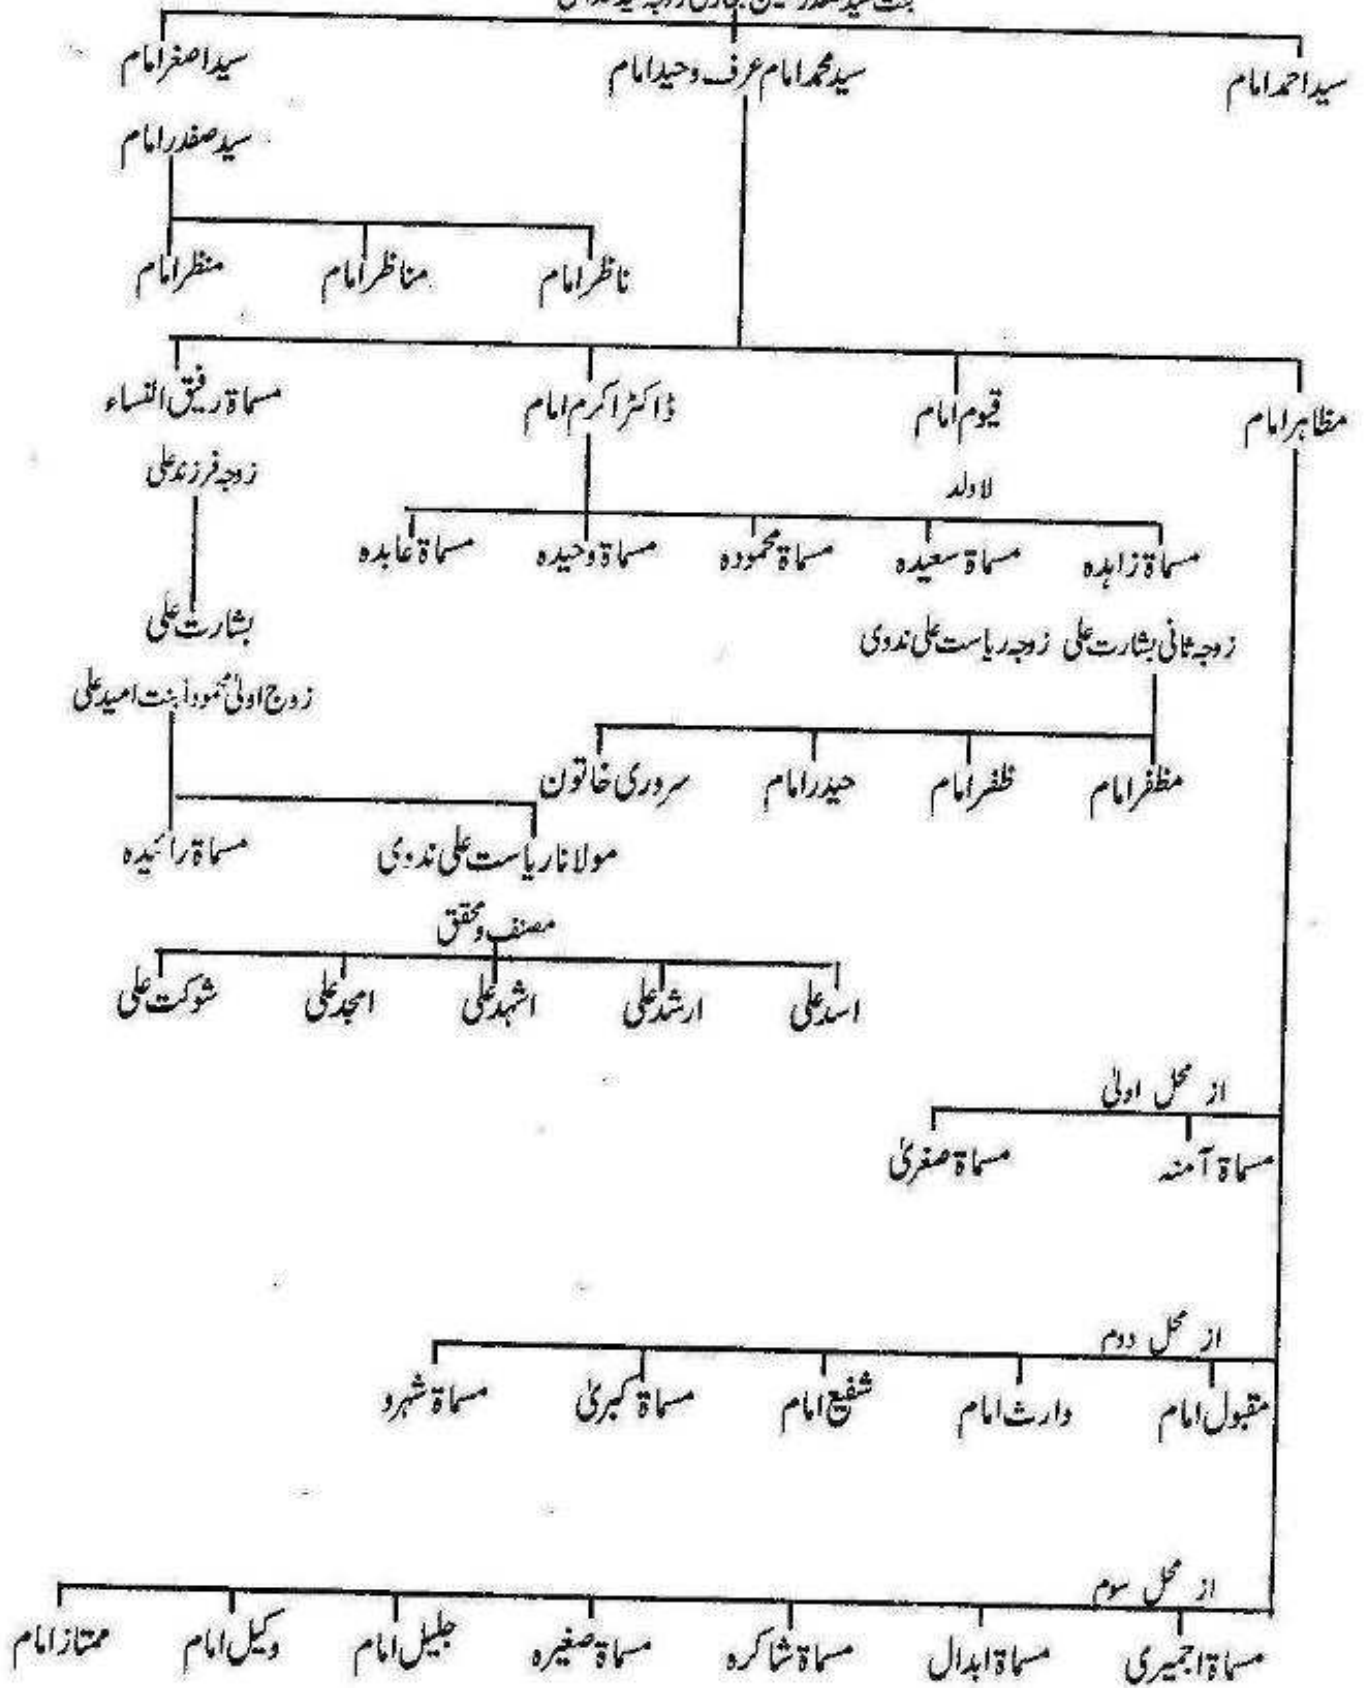 سید احمد امام سید محمد امام عرف وحید امام سید اصغر امام
سید صفدر امام
ناظر امام مناظر امام منظر امام
مظاہر امام قیوم امام ڈاکٹر اکرم امام مسماۃ رفیق النساء
لاولد زوجہ فرزند علی
مسماۃ زاہدہ مسماۃ سعیدہ مسماۃ محمودہ مسماۃ وحیدہ مسماۃ عابدہ
زوجہ ثانی بشارت علی زوجہ ریاست علی ندوی بشارت علی
زوج اولیٰ محمودا بنت امید علی
مظفر امام ظفر امام حیدر امام سروری خاتون
مولانا ریاست علی ندوی مسماۃ رائیدہ
مصنف و محقق
اسد علی ارشد علی اشہد علی امجد علی شوکت علی
از محل اولیٰ
مسماۃ آمنہ مسماۃ صغریٰ
از محل دوم
مقبول امام وارث امام شفیع امام مسماۃ کبریٰ مسماۃ شہرو
از محل سوم
مسماۃ اجمیری مسماۃ ابدال مسماۃ شاکرہ مسماۃ صغیرہ جلیل امام وکیل امام ممتاز امام